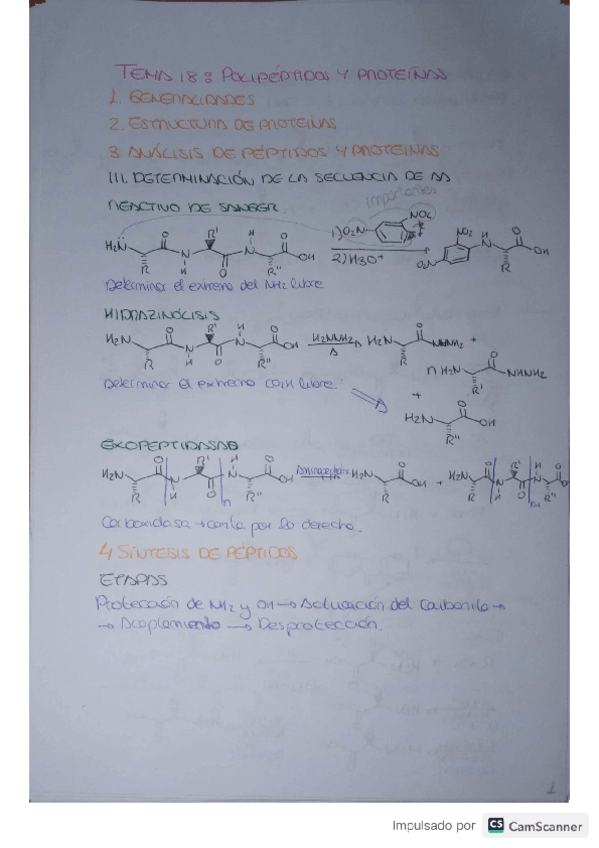 TEMA 18.3 POLIPÉPTIDOS Y PROTEÍNAS
1. GENERALIDADES
2. ESTRUCTURA DE PROTEÍNAS
3 ANÁLISIS DE PÉPTIDOS Y PROTEINAS
III. DETERMINACIÓN DE LA SECUENCIA DE AA
importantes
REACTIVO DE SANGER
H2N R N H R' O N H O R'' OH 1) O2N NO2 2) H3O+ O2N NO2 H N O OH R
Determinar el extremo del NH2 libre
HIDRAZINÓLISIS
H2N O R N H R' O H N O R'' OH H2NNH2 Δ H2N O R NHNH2 +
n H2N O R' NHNH2
+
Determinar el extremo CO2H libre.
H2N O R'' OH
EXOPEPTIDASAS
H2N O R N H R' O n H N O R'' OH H2N O R OH + H2N O R N H R' O H N O R''
Carboxilasa → corta por la derecha.
4 SÍNTESIS DE PÉPTIDOS
ETAPAS
Protección de NH2 y OH → Activación del Carbonilo →
→ Acoplamiento → Desprotección.
1
Impulsado por CS CamScanner